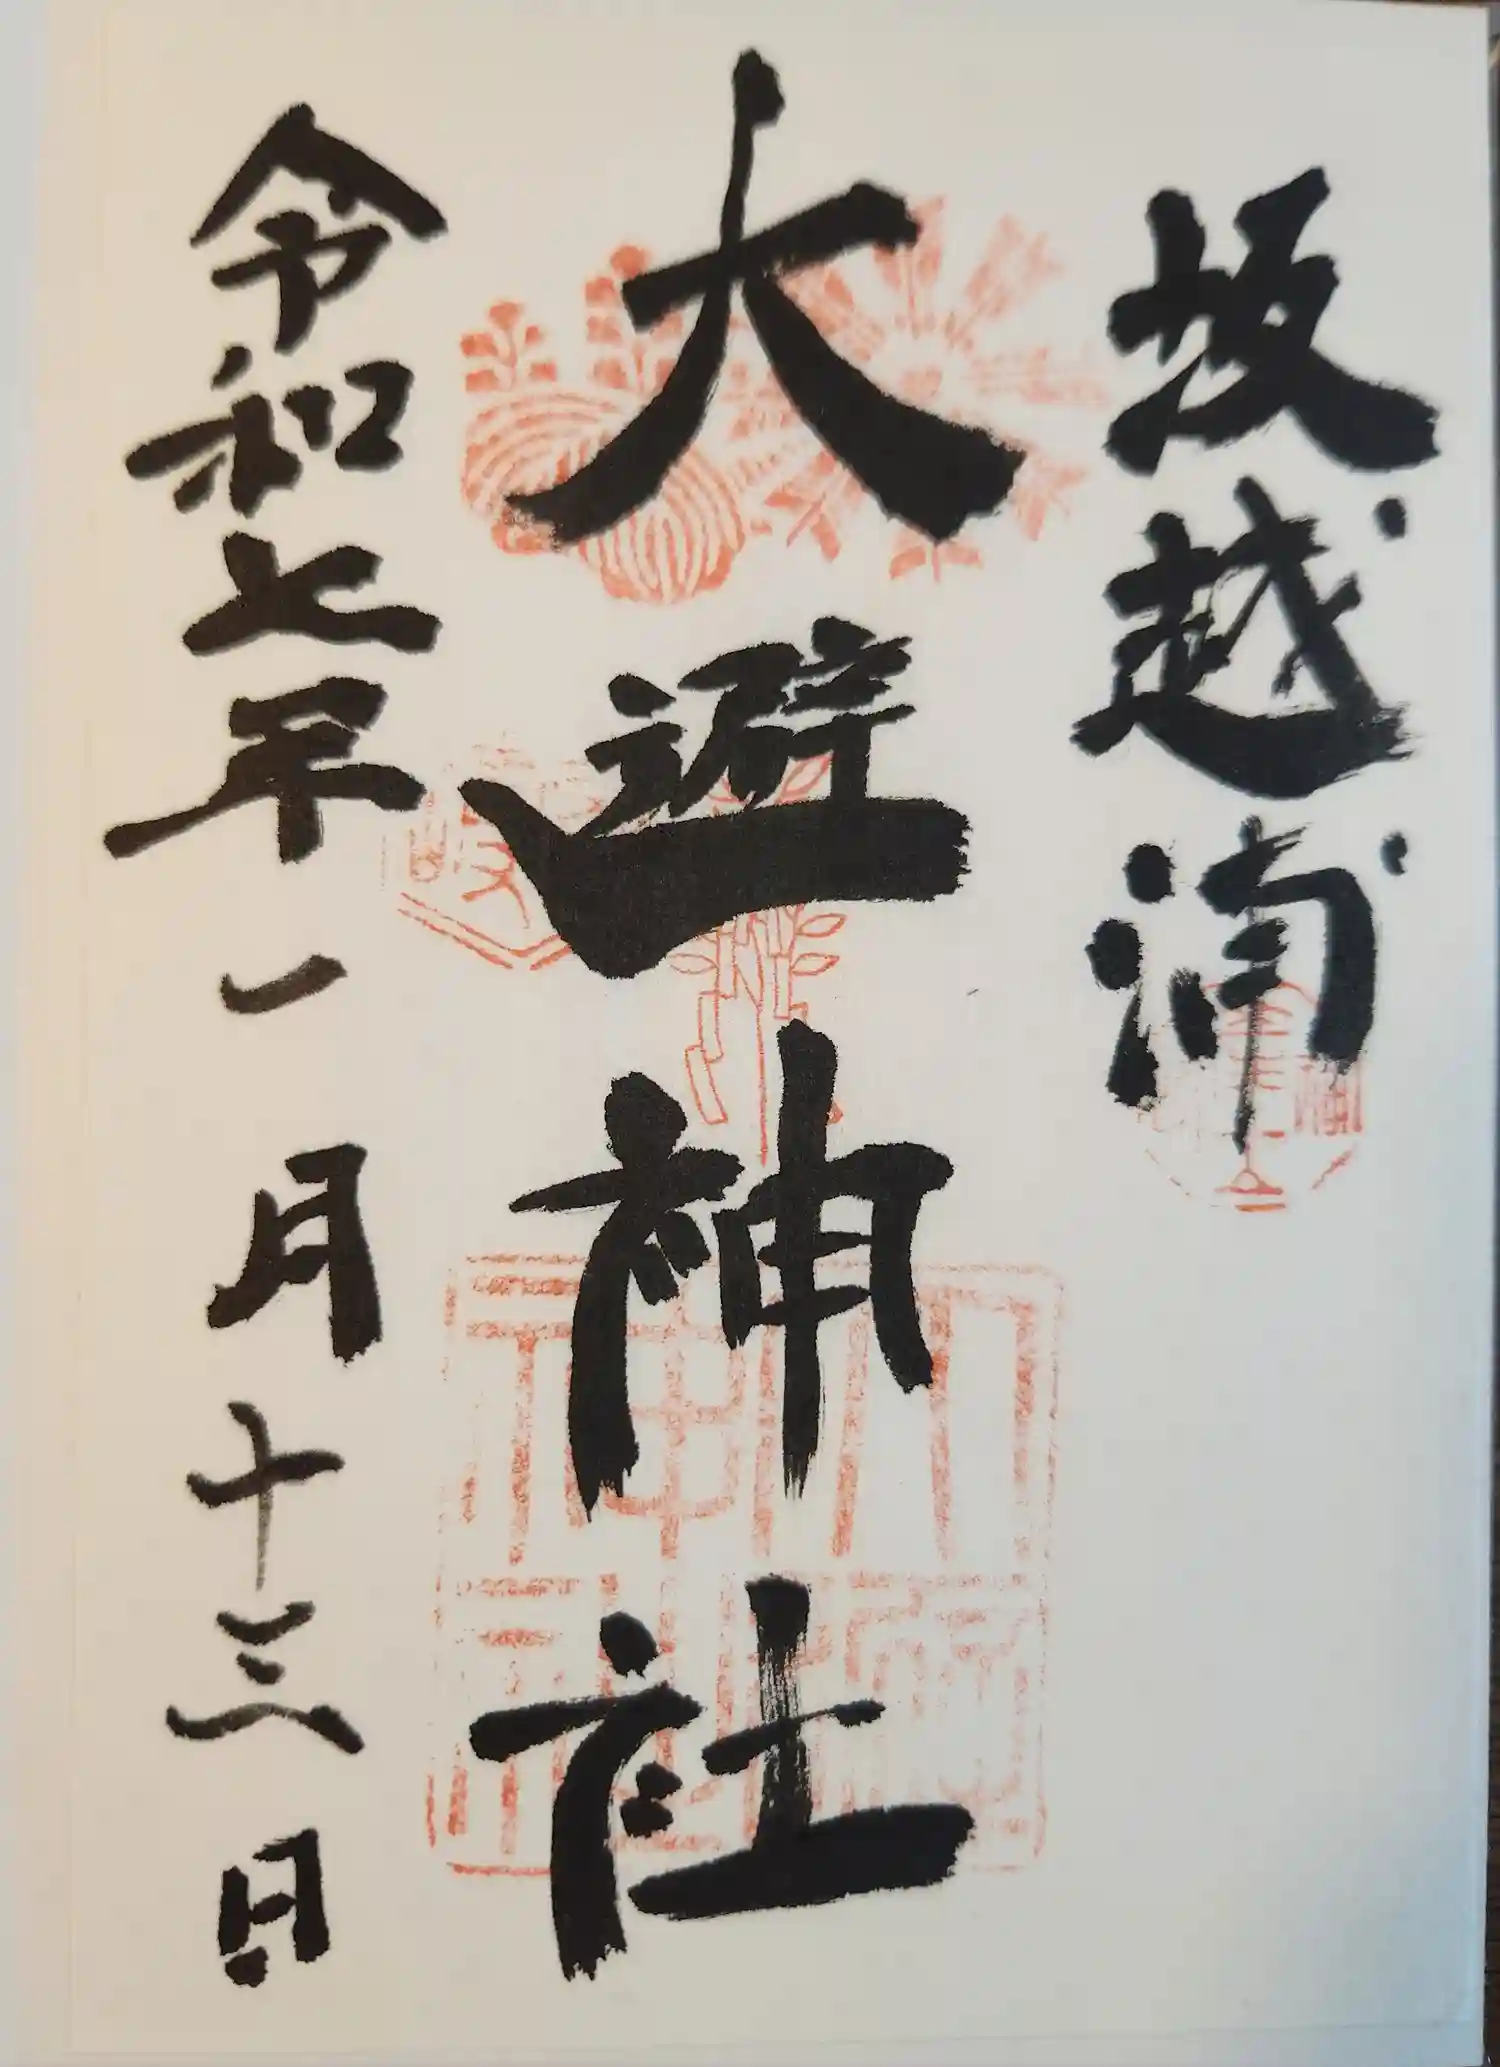 坂越浦
大避神社
令和七年一月十三日